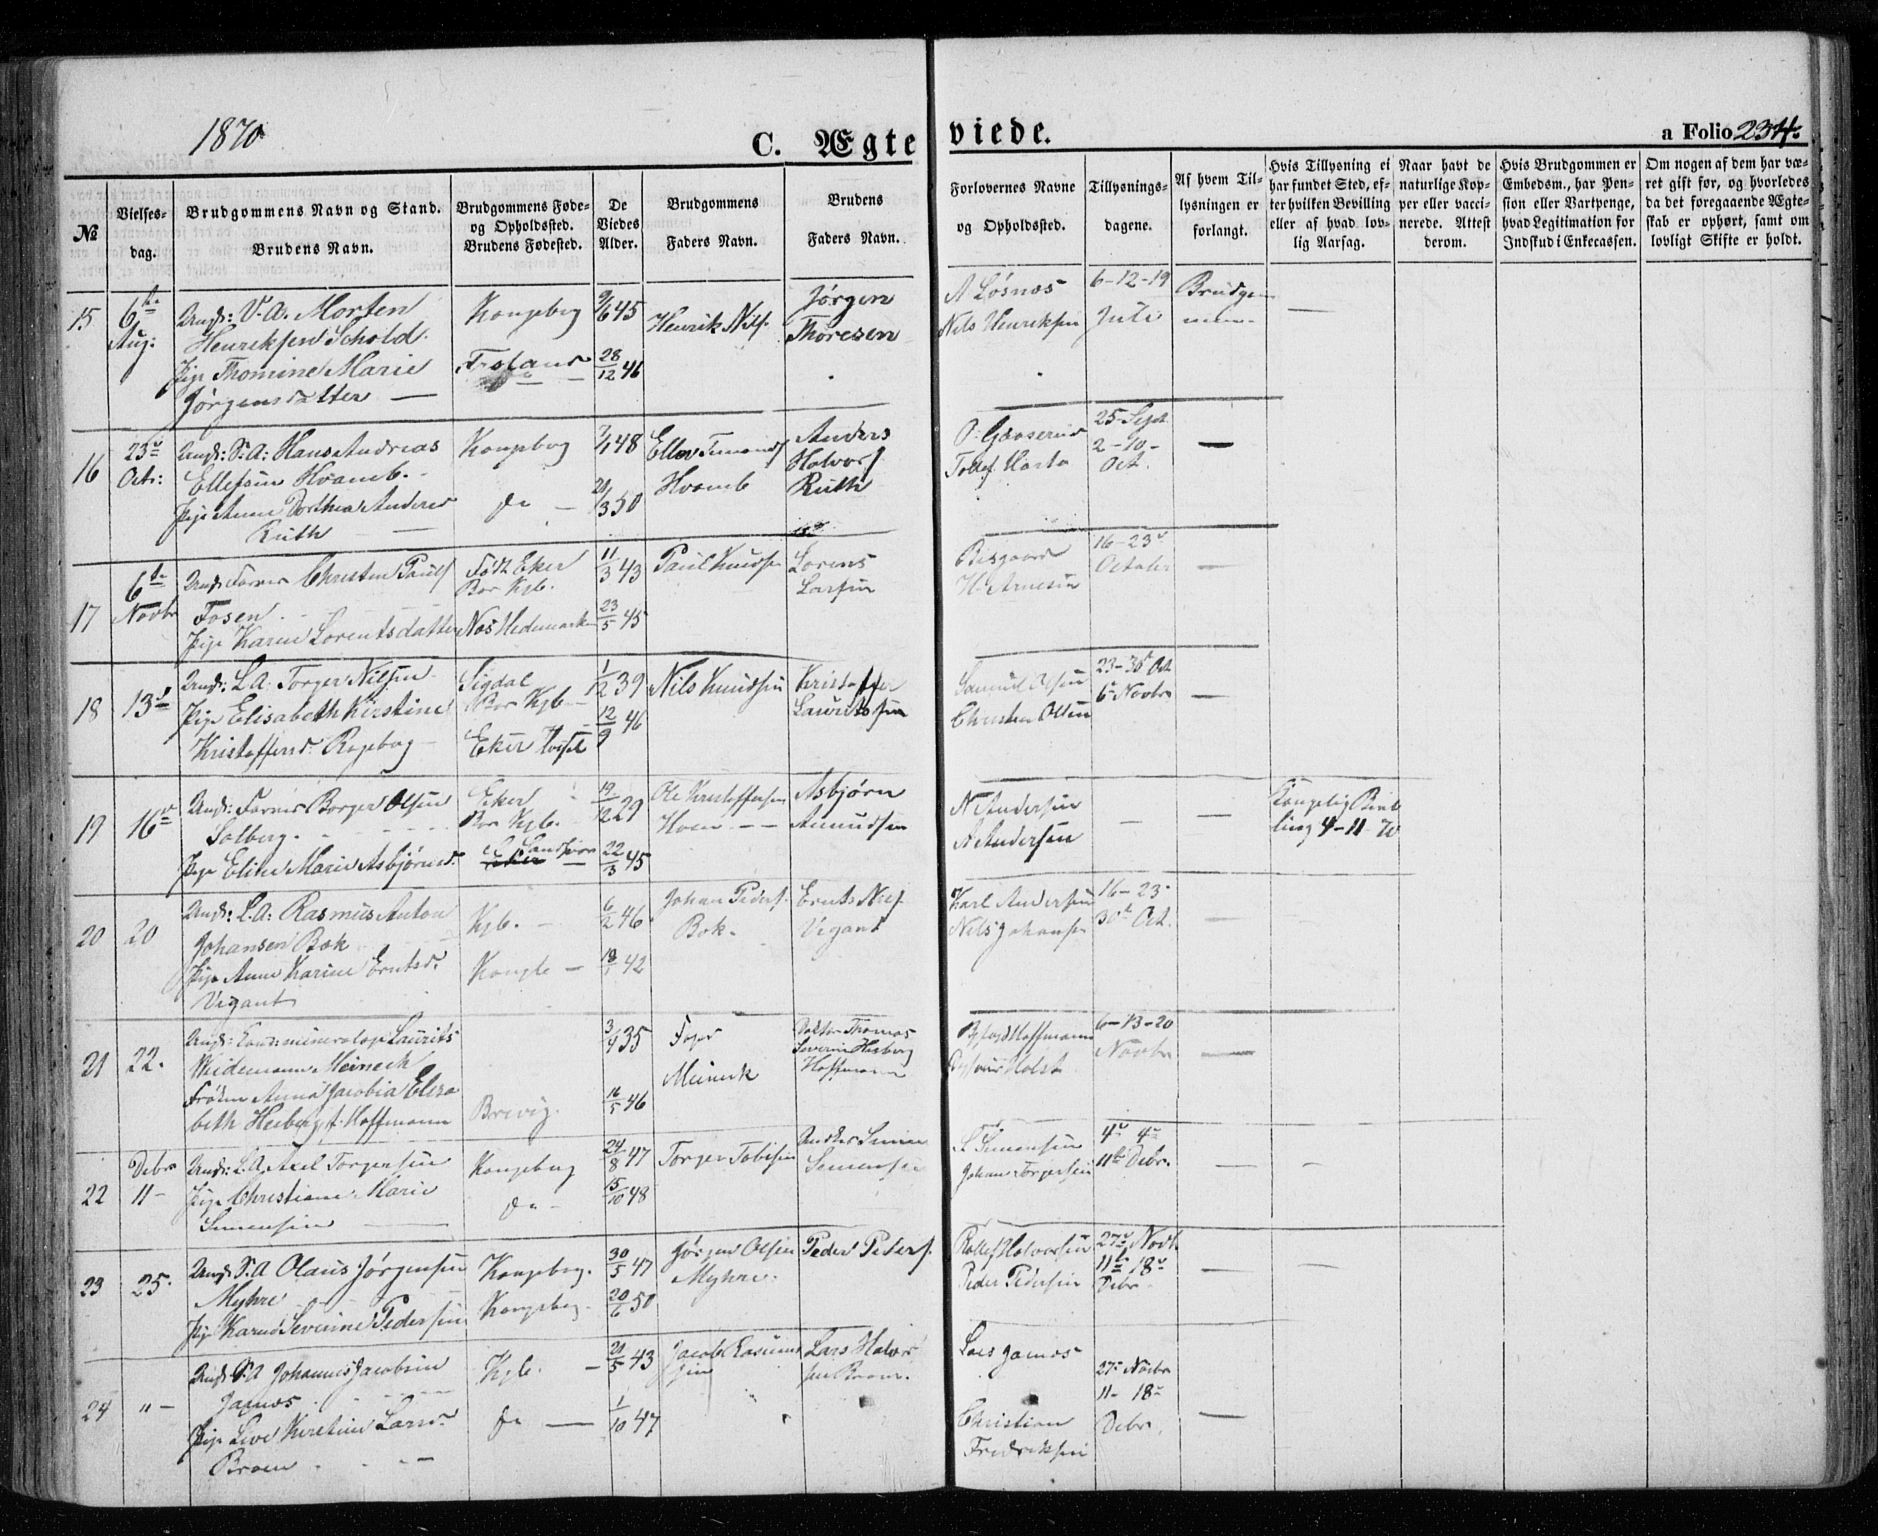 1870
C. Ægteviede.
a Folio 234.
№
Vielses-
dag.
Brudgommens Navn og Stand.
Brudens Navn.
Brudgommens Føde-
og Opholdssted.
Brudens Fødested.
De
Viedes
Alder.
Brudgommens
Faders Navn.
Brudens
Faders Navn.
Forlovernes Navne
og Opholdssted.
Tillysnings-
dagene.
Af hvem Til-
lysningen er
forlangt.
Hvis Tillysning ei
har fundet Sted, ef-
ter hvilken Bevilling
eller af hvad lov-
lig Aarsag.
Naar havt de
naturlige Kop-
per eller vacci-
nerede. Attest
derom.
Hvis Brudgommen er
Embedsm., har Pen-
sion eller Vartpenge,
hvad Legitimation for
Indskud i Enkecassen.
Om nogen af dem har væ-
ret gift før, og hvorledes
da det foregaaende Ægte-
skab er ophørt, samt om
lovligt Skifte er holdt.
15
6te
Aug:
Ungk: V. A. Morten
Henriksen Schold.
Pige Thomine Marie
Jørgensdatter
Kongsberg
9/6 45
28/12 46
Henrik Nils.
Jørgen
Thoresen
A Løsnæs
Nils Henriksen
6-12-19
Juli
Brudgom-
men
—
16
23de
Octr:
Ungk: S. A: Hans Andreas
Ellefsen Hvamb.
Pige Anne Dorthea Anders
Ruth
Kongsberg
do —
7/1 48
20/3 50
Hvamb
Anders
Halvors
Ruth
25 Sept
2-10-
Oct.
—
17
6te
Novbr
Christen Pauls
Fosen
Pige Karen Lorentsdatter
Født Eker
Bor Kgb.
Næs Hedemarken
11/3 43
23/5 45
Paul Knudsen
Lorens
Larsen
H. Arnesen
16-23de
October
—
18
13de
Ungk: L. A. Torger Nilsen
Pige Elisabeth Kirstine
Kristoffersd.
Sigdal
Bor Kgb.
Eker
1/12 39
12/9 46
Nils Knudsen
Kristoffer
Lauritssen
Samuel Olsen
Christen Olsen
23-30 Oct
6 Novbr
—
19
16de
Borger Olsen
Solberg
Pige Eline Marie Asbjørnsd.
Eker
Bor Kgb.
19/12 29
22/3 45
Ole Kristoffersen
Hoen
Asbjørn
Amundsen
N Andersen
A Andersen
—
—
4-11-70
20
20
Ungk: L. A: Rasmus Anton
Johansen Bok
Pige Anne Karine Erntsd.
Vigant
Kgb. —
6/2 46
42
Johan Peders.
Bok
Ernts Nils.
Vigant
Karl Andersen
Nils Johansen
16-23
30te Oct.
—
21
22.
Laurits
Weidemann Meineck
Frøken Anna Jacobia Elisa-
beth Heiberg f. Hoffmann
Brevig.
3/4 35
16/5 46
Meineck
Doktor Thomas
Severin Heiberg
Hoffmann
6-13-20
Novbr
—
22
Debr
11-
Ungk: L. A. Axel Torgersen
Pige Christiane Marie
Simensen
Kongsberg
do -
24/8 47
15/10 48
Torger Tobisen
Simensen
S Simensen
Johan Torgersen
4de 4de
11te Debr.
—
—
23
25.
Ungk S. A Olaus Jørgensen
Myhre
Pige Karen Severine Pedersen
Kongsberg.
Kongsberg
30/5 47
20/6 50
Jørgen Olsen
Myhre.
Peder Peders.
Rollef Halvorsen
Peder Pedersen
27de Novb
11te 18de
Debr
—
—
24
" -
Ungk S. A Johannes Jacobsen
Jamos
Pige Live Kirstine Larsd.
Broen
Kgb. —
do —
21/5 43
1/10 47
Lars Halvor-
sen Broen.
Lars Jamos
Christian
Fredriksen
27de Novbr
11- 18de
Debr.
—